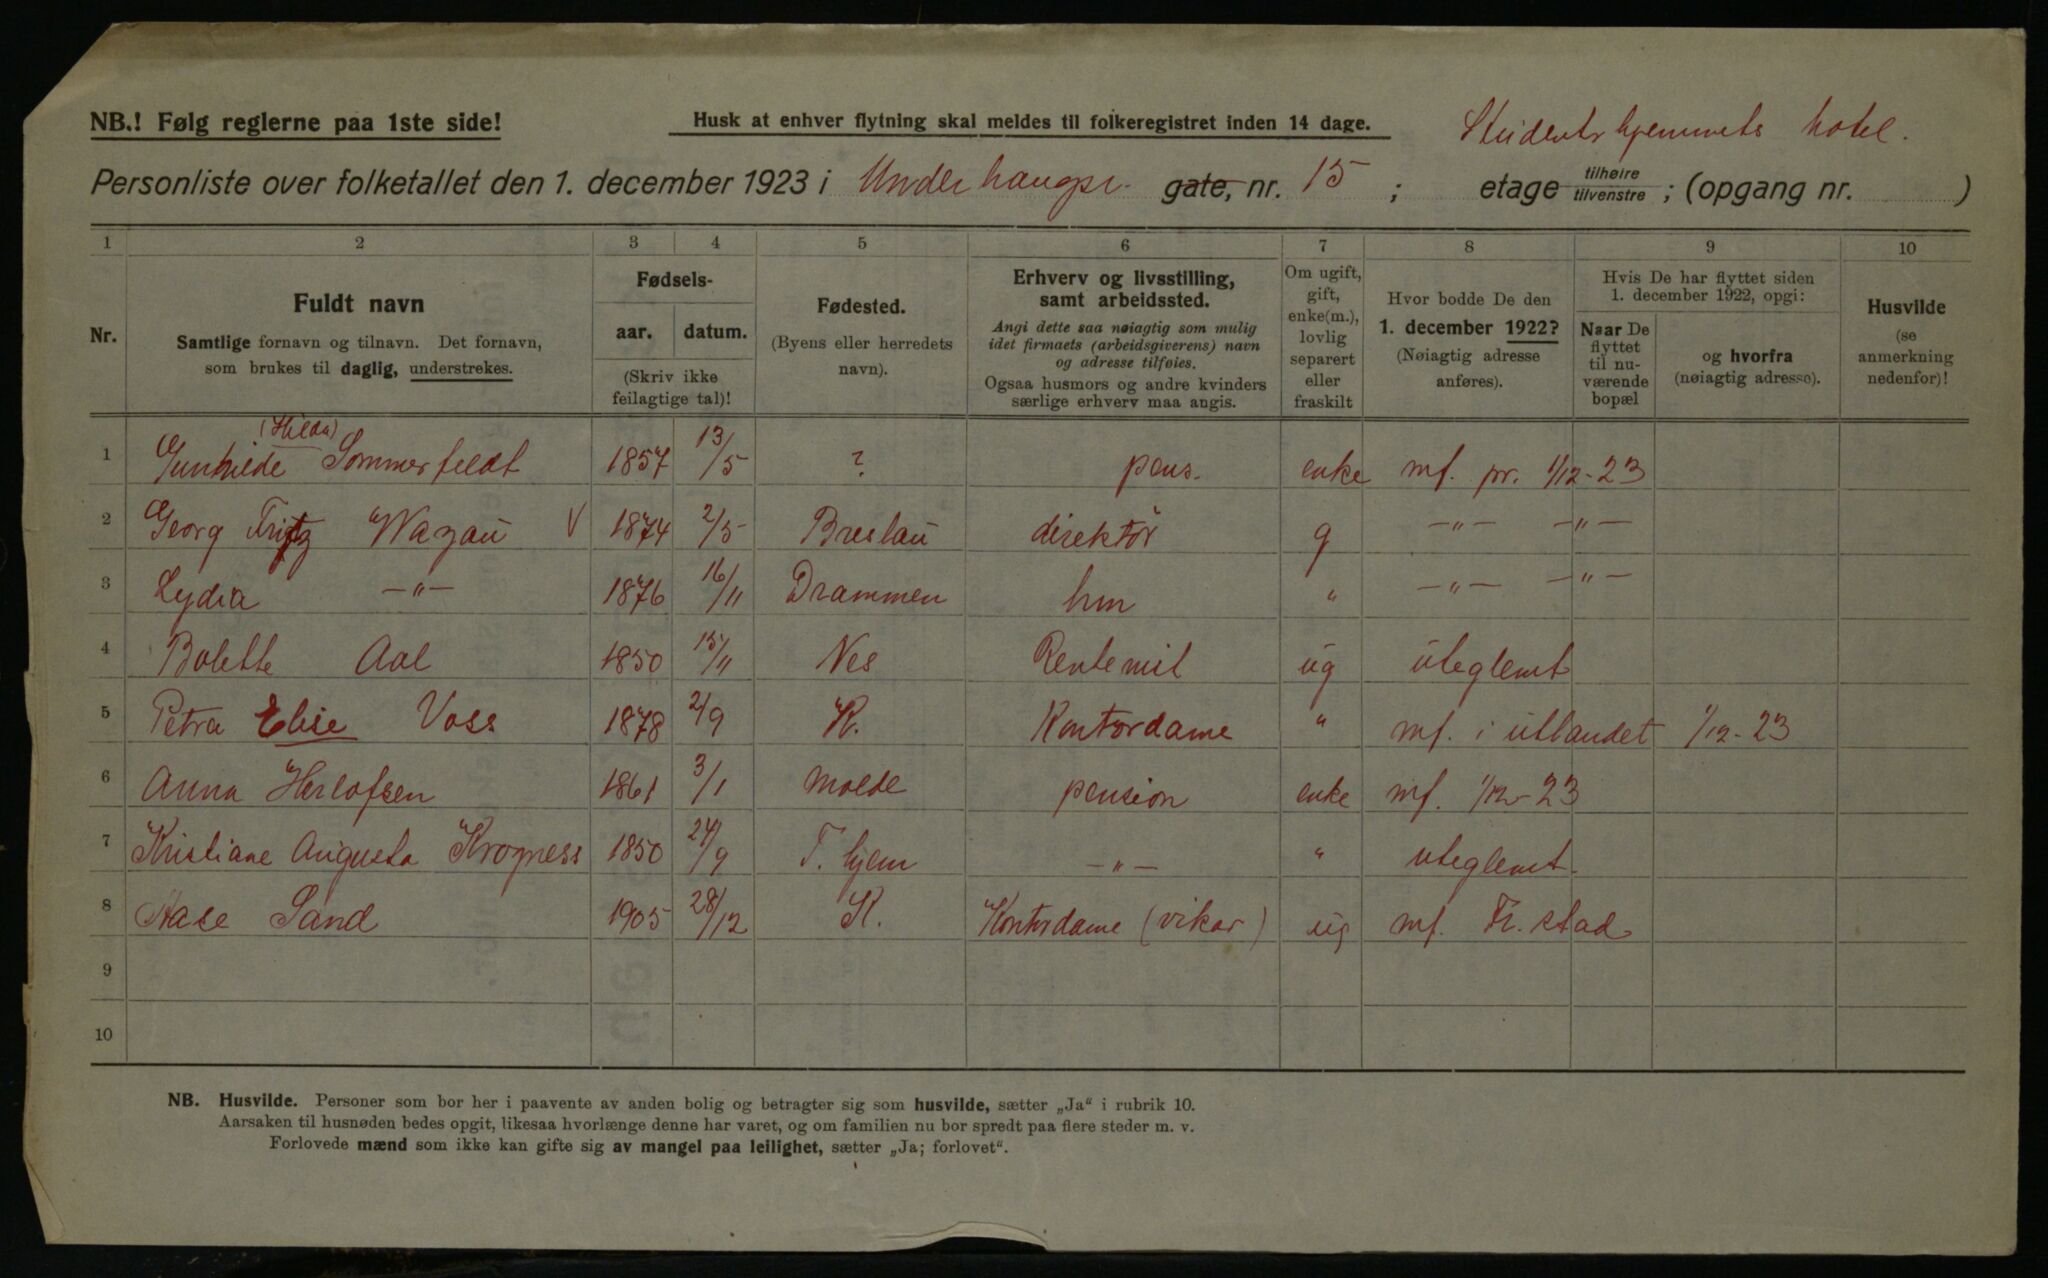 NB.! Følg reglerne paa 1ste side!
Husk at enhver flytning skal meldes til folkeregistret inden 14 dage.
Studenterhjemmets hotel.
Personliste over folketallet den 1. december 1923 i Underhaugsv. gate, nr. 15 ; etage tilhøire tilvenstre ; (opgang nr. )
1 2 3 4 5 6 7 8 9 10
Nr.
Fuldt navn
Samtlige fornavn og tilnavn. Det fornavn,
som brukes til daglig, understrekes.
Fødsels-
aar. datum.
(Skriv ikke
feilagtige tal)!
Fødested.
(Byens eller herredets
navn).
Erhverv og livsstilling,
samt arbeidssted.
Angi dette saa nøiagtig som mulig
idet firmaets (arbeidsgiverens) navn
og adresse tilføies.
Ogsaa husmors og andre kvinders
særlige erhverv maa angis.
Om ugift,
gift,
enke(m.),
lovlig
separert
eller
fraskilt
Hvor bodde De den
1. december 1922?
(Nøiagtig adresse
anføres).
Hvis De har flyttet siden
1. december 1922, opgi:
Naar De
flyttet
til nu-
værende
bopæl
og hvorfra
(nøiagtig adresse).
Husvilde
(se
anmerkning
nedenfor)!
1 Gunhilde (Hilda) Sommerfeldt 1857 13/5 ? pens. enke mf. pr. 1/12-23
2 Georg Fritz Wazau V 1874 2/5 Breslau direktör g —"— —"—
3 Lydia —"— 1876 16/11 Drammen hm " —"— —"—
4 Bolette Aal 1850 15/11 Nes Rentenist ug uteglemt
5 Petra Elise Voss 1878 2/9 K. Kontordame " mf. i utlandet 1/12-23
6 Anna Herlofsen 1861 3/1 Molde pension enke mf. 1/12-23
7 Kristiane Augusta Krogness 1850 24/9 T. hjem —"— " uteglemt.
8 Aase Sand 1905 28/12 K. Kontordame (vikar) ug mf. Fr.stad
9
10
NB. Husvilde. Personer som bor her i paavente av anden bolig og betragter sig som husvilde, sætter „Ja" i rubrik 10.
Aarsaken til husnøden bedes opgit, likesaa hvorlænge denne har varet, og om familien nu bor spredt paa flere steder m. v.
Forlovede mænd som ikke kan gifte sig av mangel paa leilighet, sætter „Ja; forlovet".